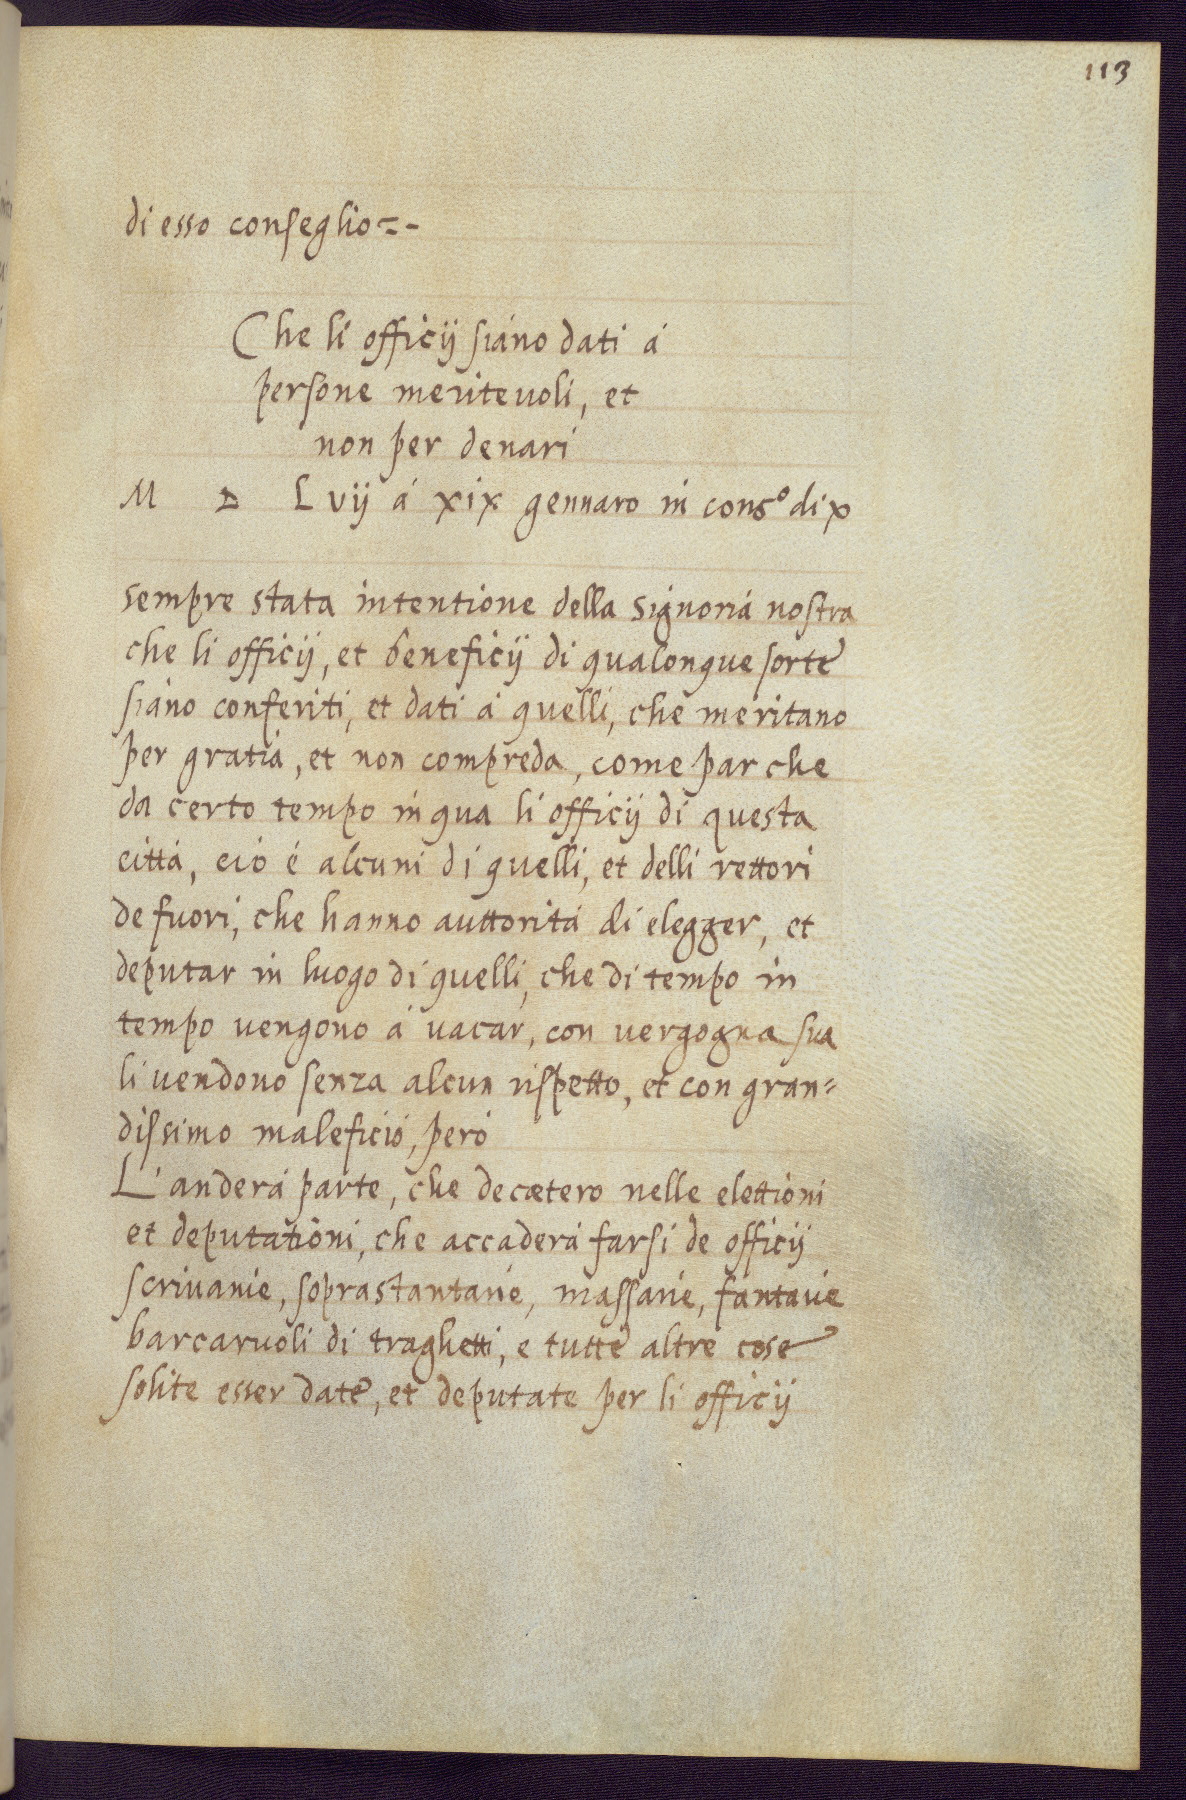 113
di esso conseglio=-
Che li officij siano dati á
persone meritevoli, et
non per denari
M D Lvij á xix gennaro in cons.º di x
sempre stata intentione della signoria nostra
che li officij, et beneficij di qualonque sorte
siano conferiti, et dati á quelli, che meritano
per gratia, et non compreda, come par che
da certo tempo in qua li officij di questa
cittá, ció é alcuni di quelli, et delli rettori
de fuori, che hanno auttoritá di elegger, et
deputar in luogo di quelli, che di tempo in
tempo vengono á vacar, con vergogna sua
li vendono senza alcun rispetto, et con gran=
dissimo maleficio, peró
L'anderá parte, che decætero nelle elettioni
et deputationi, che accaderá farsi de officij
scrivanie, soprastantarie, massarie, fantarie
barcaruoli di traghetti, e tutte altre cose
solite esser date, et deputate per li officij